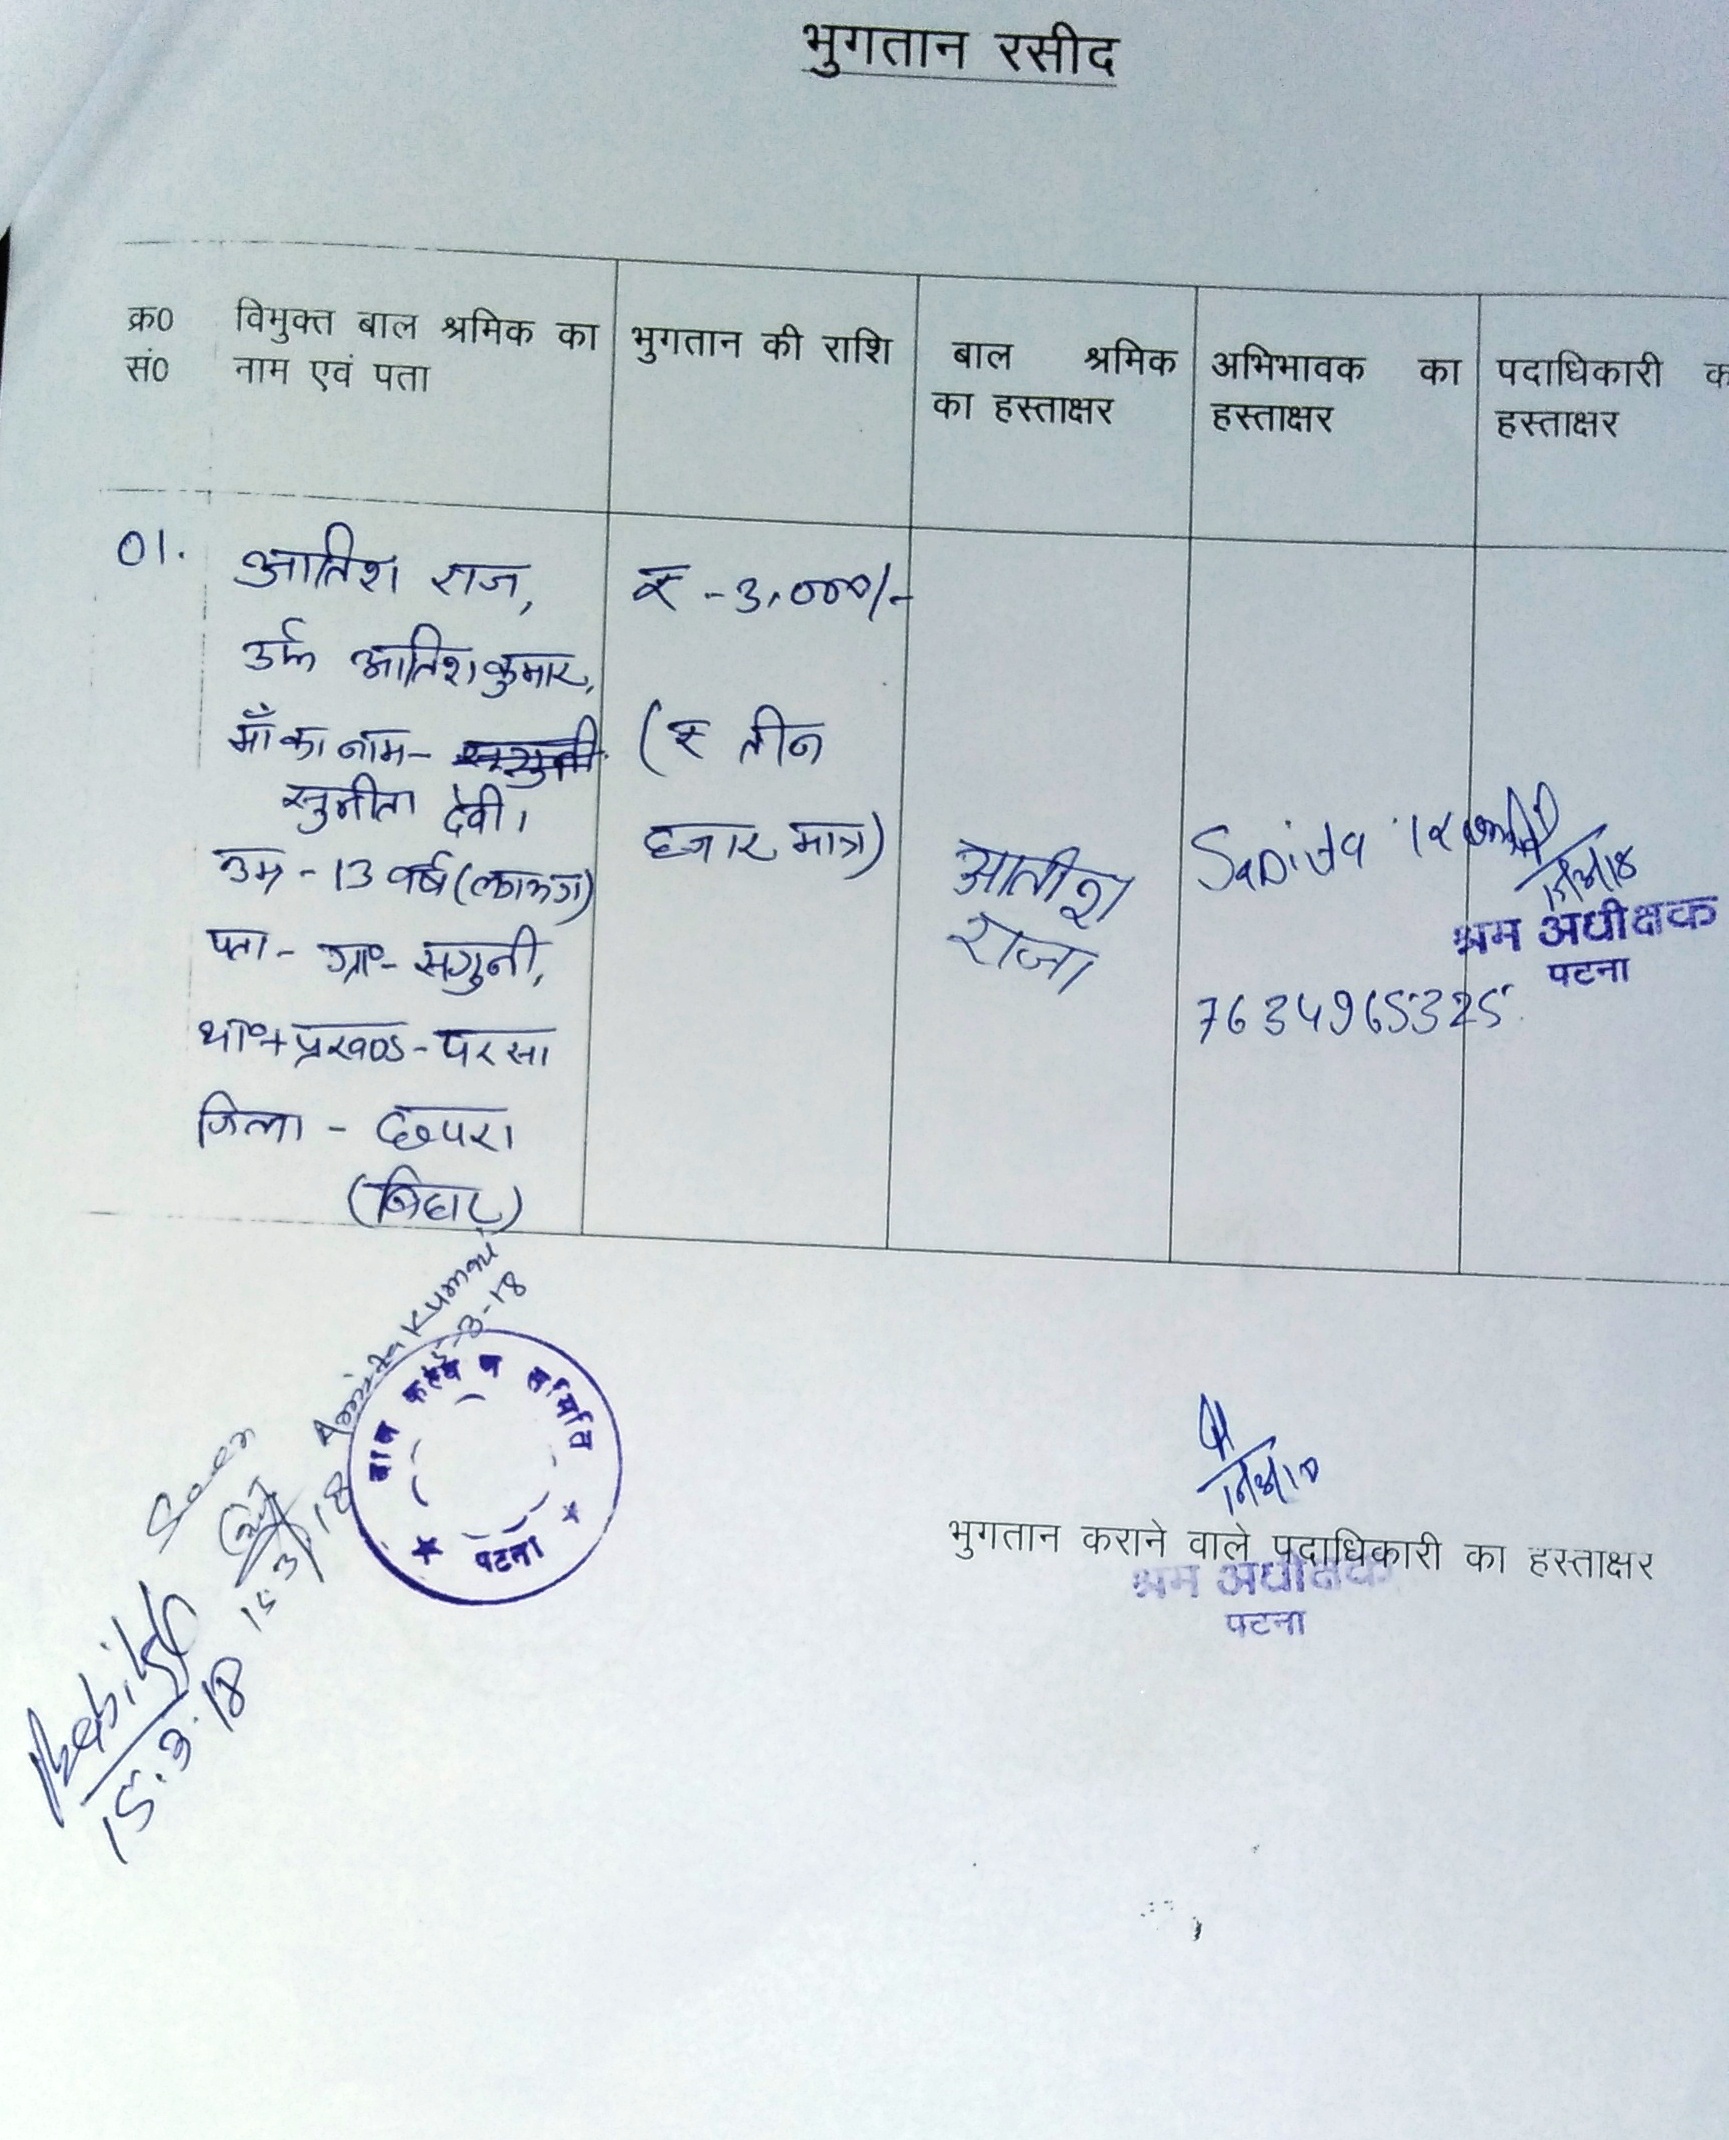 भुगतान रसीद
क्र0 सं0
विमुक्त बाल श्रमिक का
नाम एवं पता
भुगतान की राशि
बाल श्रमिक
का हस्ताक्षर
अभिभावक का
हस्ताक्षर
पदाधिकारी
हस्ताक्षर
01.
आतिश राज,
उर्फ आतिश कुमार,
माँ का नाम-
सुनीता देवी।
उम्र - 13 वर्ष (लगभग)
पता - ग्रा०- सगुनी,
था०+प्रखण्ड - परसा
जिला - छपरा
(बिहार)
₹ - 3,000/-
(₹ तीन
हजार मात्र)
आतीश
राजा
7634965325
श्रम अधीक्षक
पटना
Kumari
Seen
15.3.18
15.3.18
बाल कल्याण समिति
पटना
भुगतान कराने वाले पदाधिकारी का हस्ताक्षर
श्रम अधीक्षक
पटना